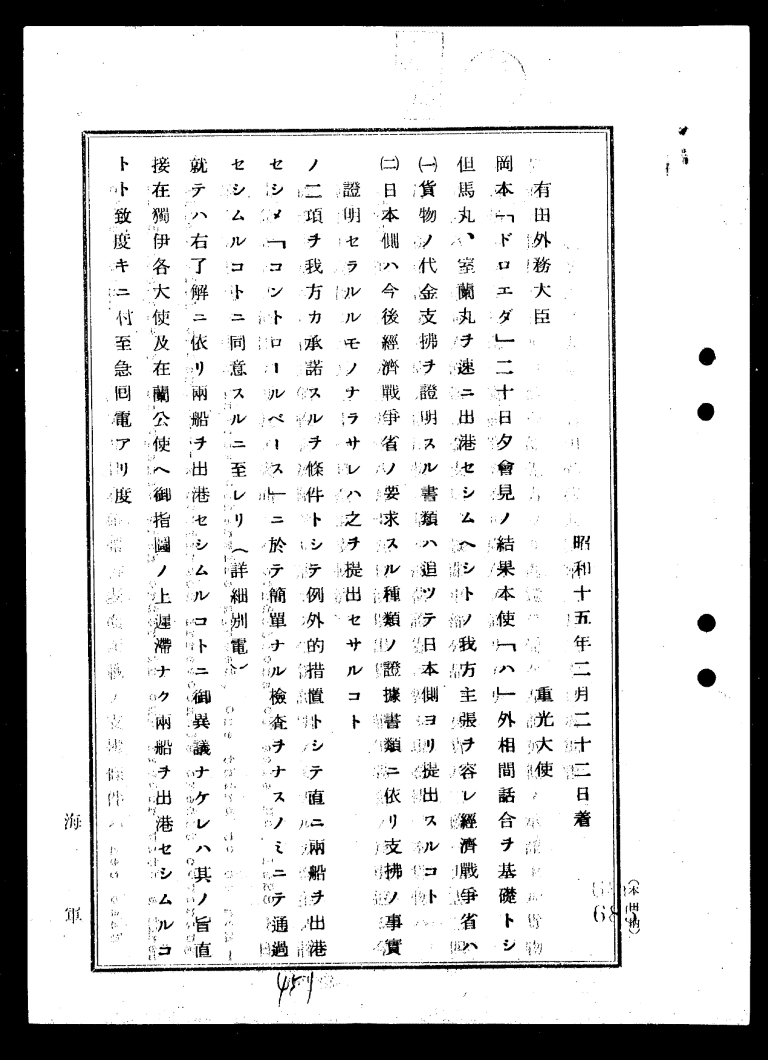 昭和十五年二月二十二日着
重光大使
有田外務大臣
岡本「ドロエダ」二十日夕會見ノ結果本使「ハ」外相間話合ヲ基礎トシ
但馬丸、室蘭丸ヲ速ニ出港セシムヘシトノ我方主張ヲ容レ經濟戰爭省ハ
㈠貨物ノ代金支拂ヲ證明スル書類ハ追ツテ日本側ヨリ提出スルコト
㈡日本側ハ今後經濟戰爭省ノ要求スル種類ノ證據書類ニ依リ支拂ノ事實
證明セラルルモノナラサレハ之ヲ提出セサルコト
ノ二項ヲ我方カ承諾スルヲ條件トシテ例外的措置トシテ直ニ兩船ヲ出港
セシメ「コントロールベース」ニ於テ簡單ナル檢査ヲナスノミニテ通過
セシムルコトニ同意スルニ至レリ(詳細別電)
就テハ右了解ニ依リ兩船ヲ出港セシムルコトニ御異議ナケレハ其ノ旨直
接在獨伊各大使及在蘭公使ヘ御指圖ノ上遲滯ナク兩船ヲ出港セシムルコ
トト致度キニ付至急回電アリ度
海軍